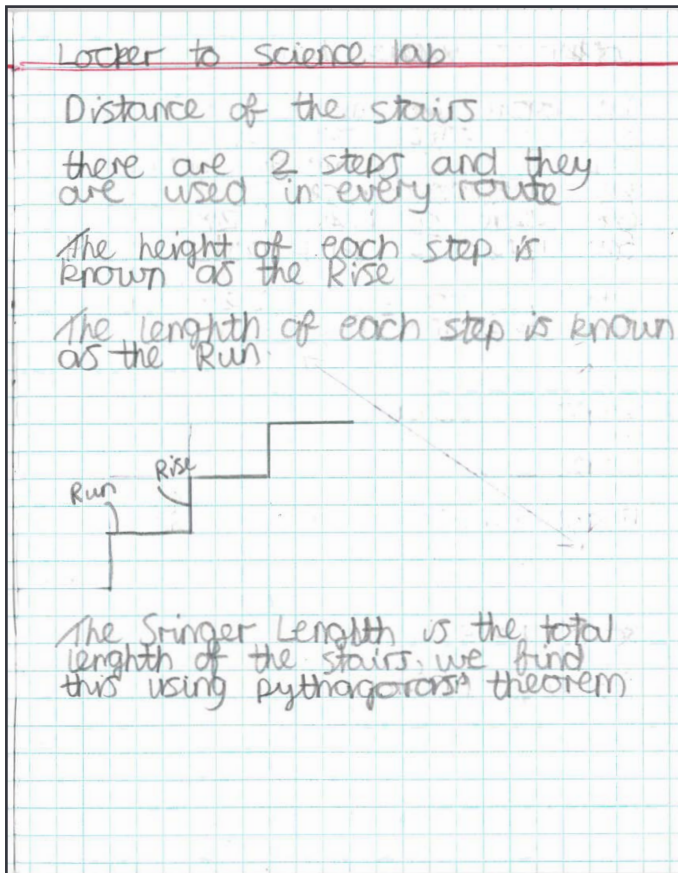 Locker to science lab
Distance of the stairs
there are 2 steps and they
are used in every route
The height of each step is
known as the Rise
The lenghth of each step is known
as the Run.
Rise
Run
The Sringer Lenghth is the total
lenghth of the stairs, we find
this using pythagoras' theorem